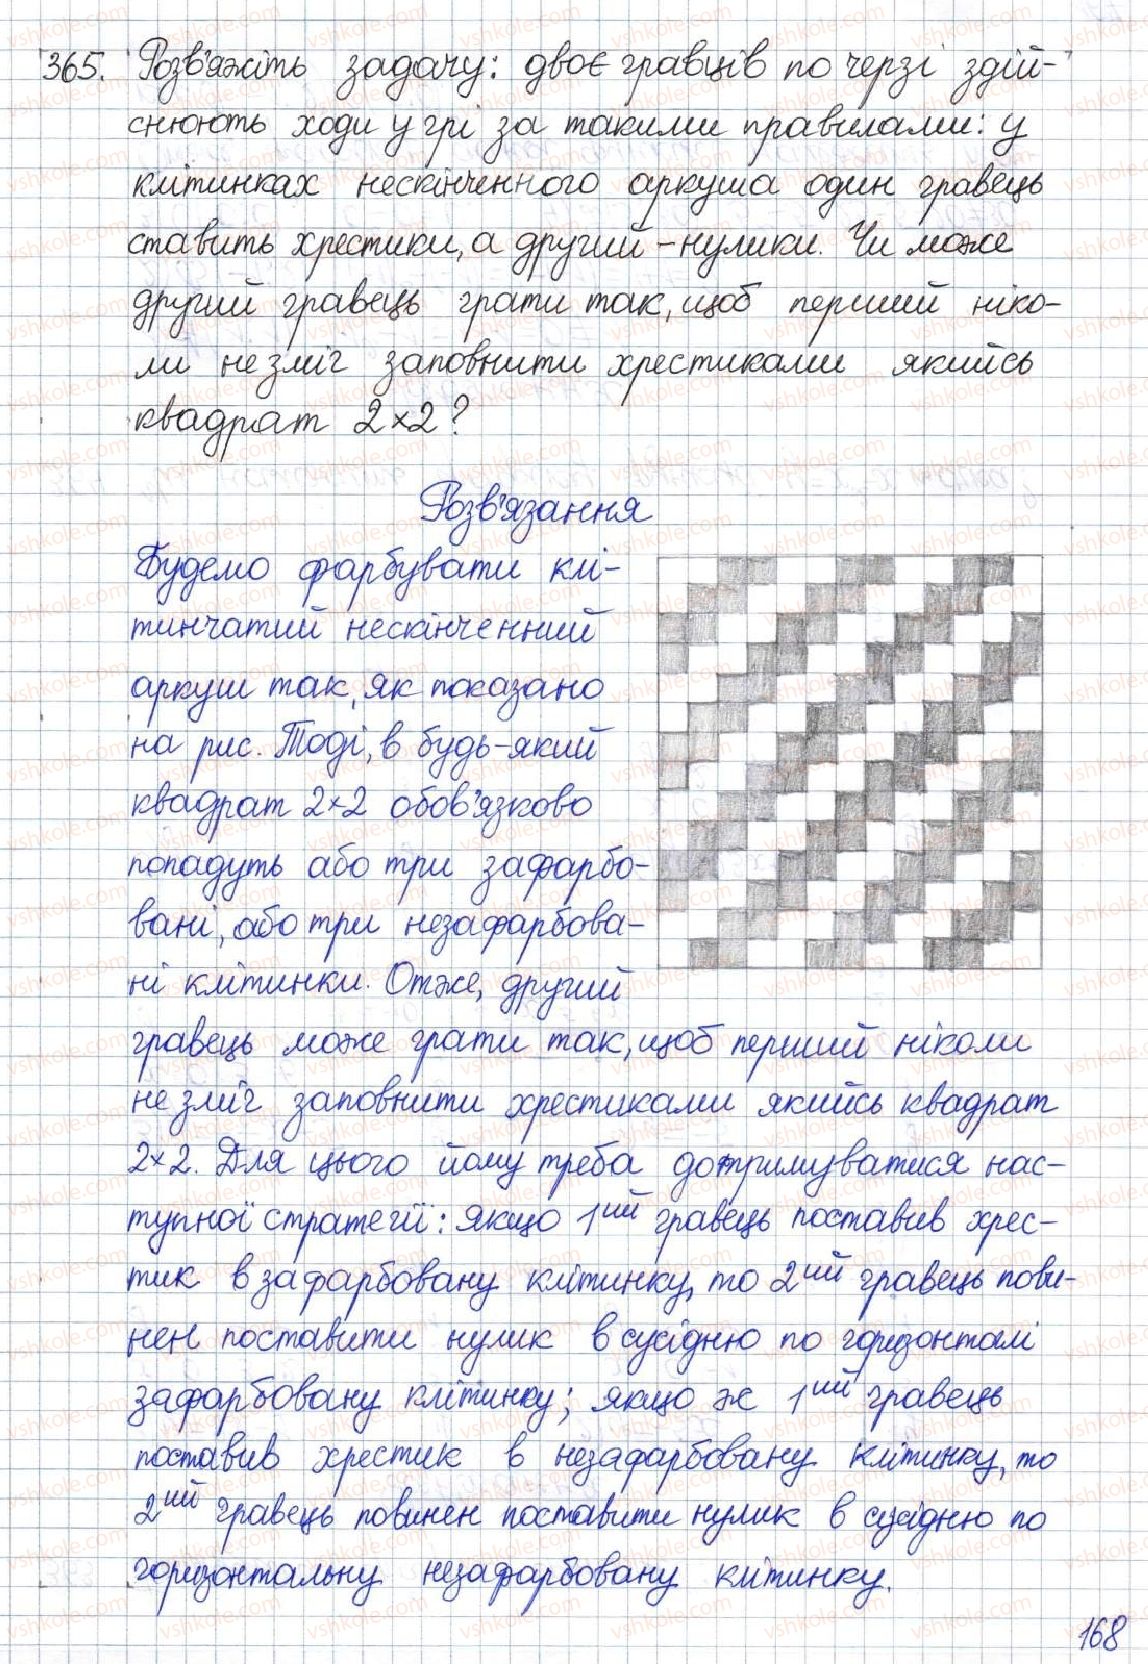 365. Розв'яжіть задачу: двоє гравців по черзі здій-
снюють ходи у грі за такими правилами: у
клітинках нескінченного аркуша один гравець
ставить хрестики, а другий – нулики. Чи може
другий гравець грати так, щоб перший ніко-
ли не зміг заповнити хрестиками якийсь
квадрат 2×2?
Розв'язання
Будемо фарбувати клі-
тинчатий нескінченний
аркуш так, як показано
на рис. Тоді, в будь-який
квадрат 2×2 обов'язково
попадуть або три зафарбо-
вані, або три незафарбова-
ні клітинки. Отже, другий
гравець може грати так, щоб перший ніколи
не зміг заповнити хрестиками якийсь квадрат
2×2. Для цього йому треба дотримуватися нас-
тупної стратегії: якщо 1ий гравець поставив хрес-
тик в зафарбовану клітинку, то 2ий гравець пови-
нен поставити нулик в сусідню по горизонталі
зафарбовану клітинку; якщо ж 1ий гравець
поставив хрестик в незафарбовану клітинку, то
2ий гравець повинен поставити нулик в сусідню по
горизонтальну незафарбовану клітинку.
168